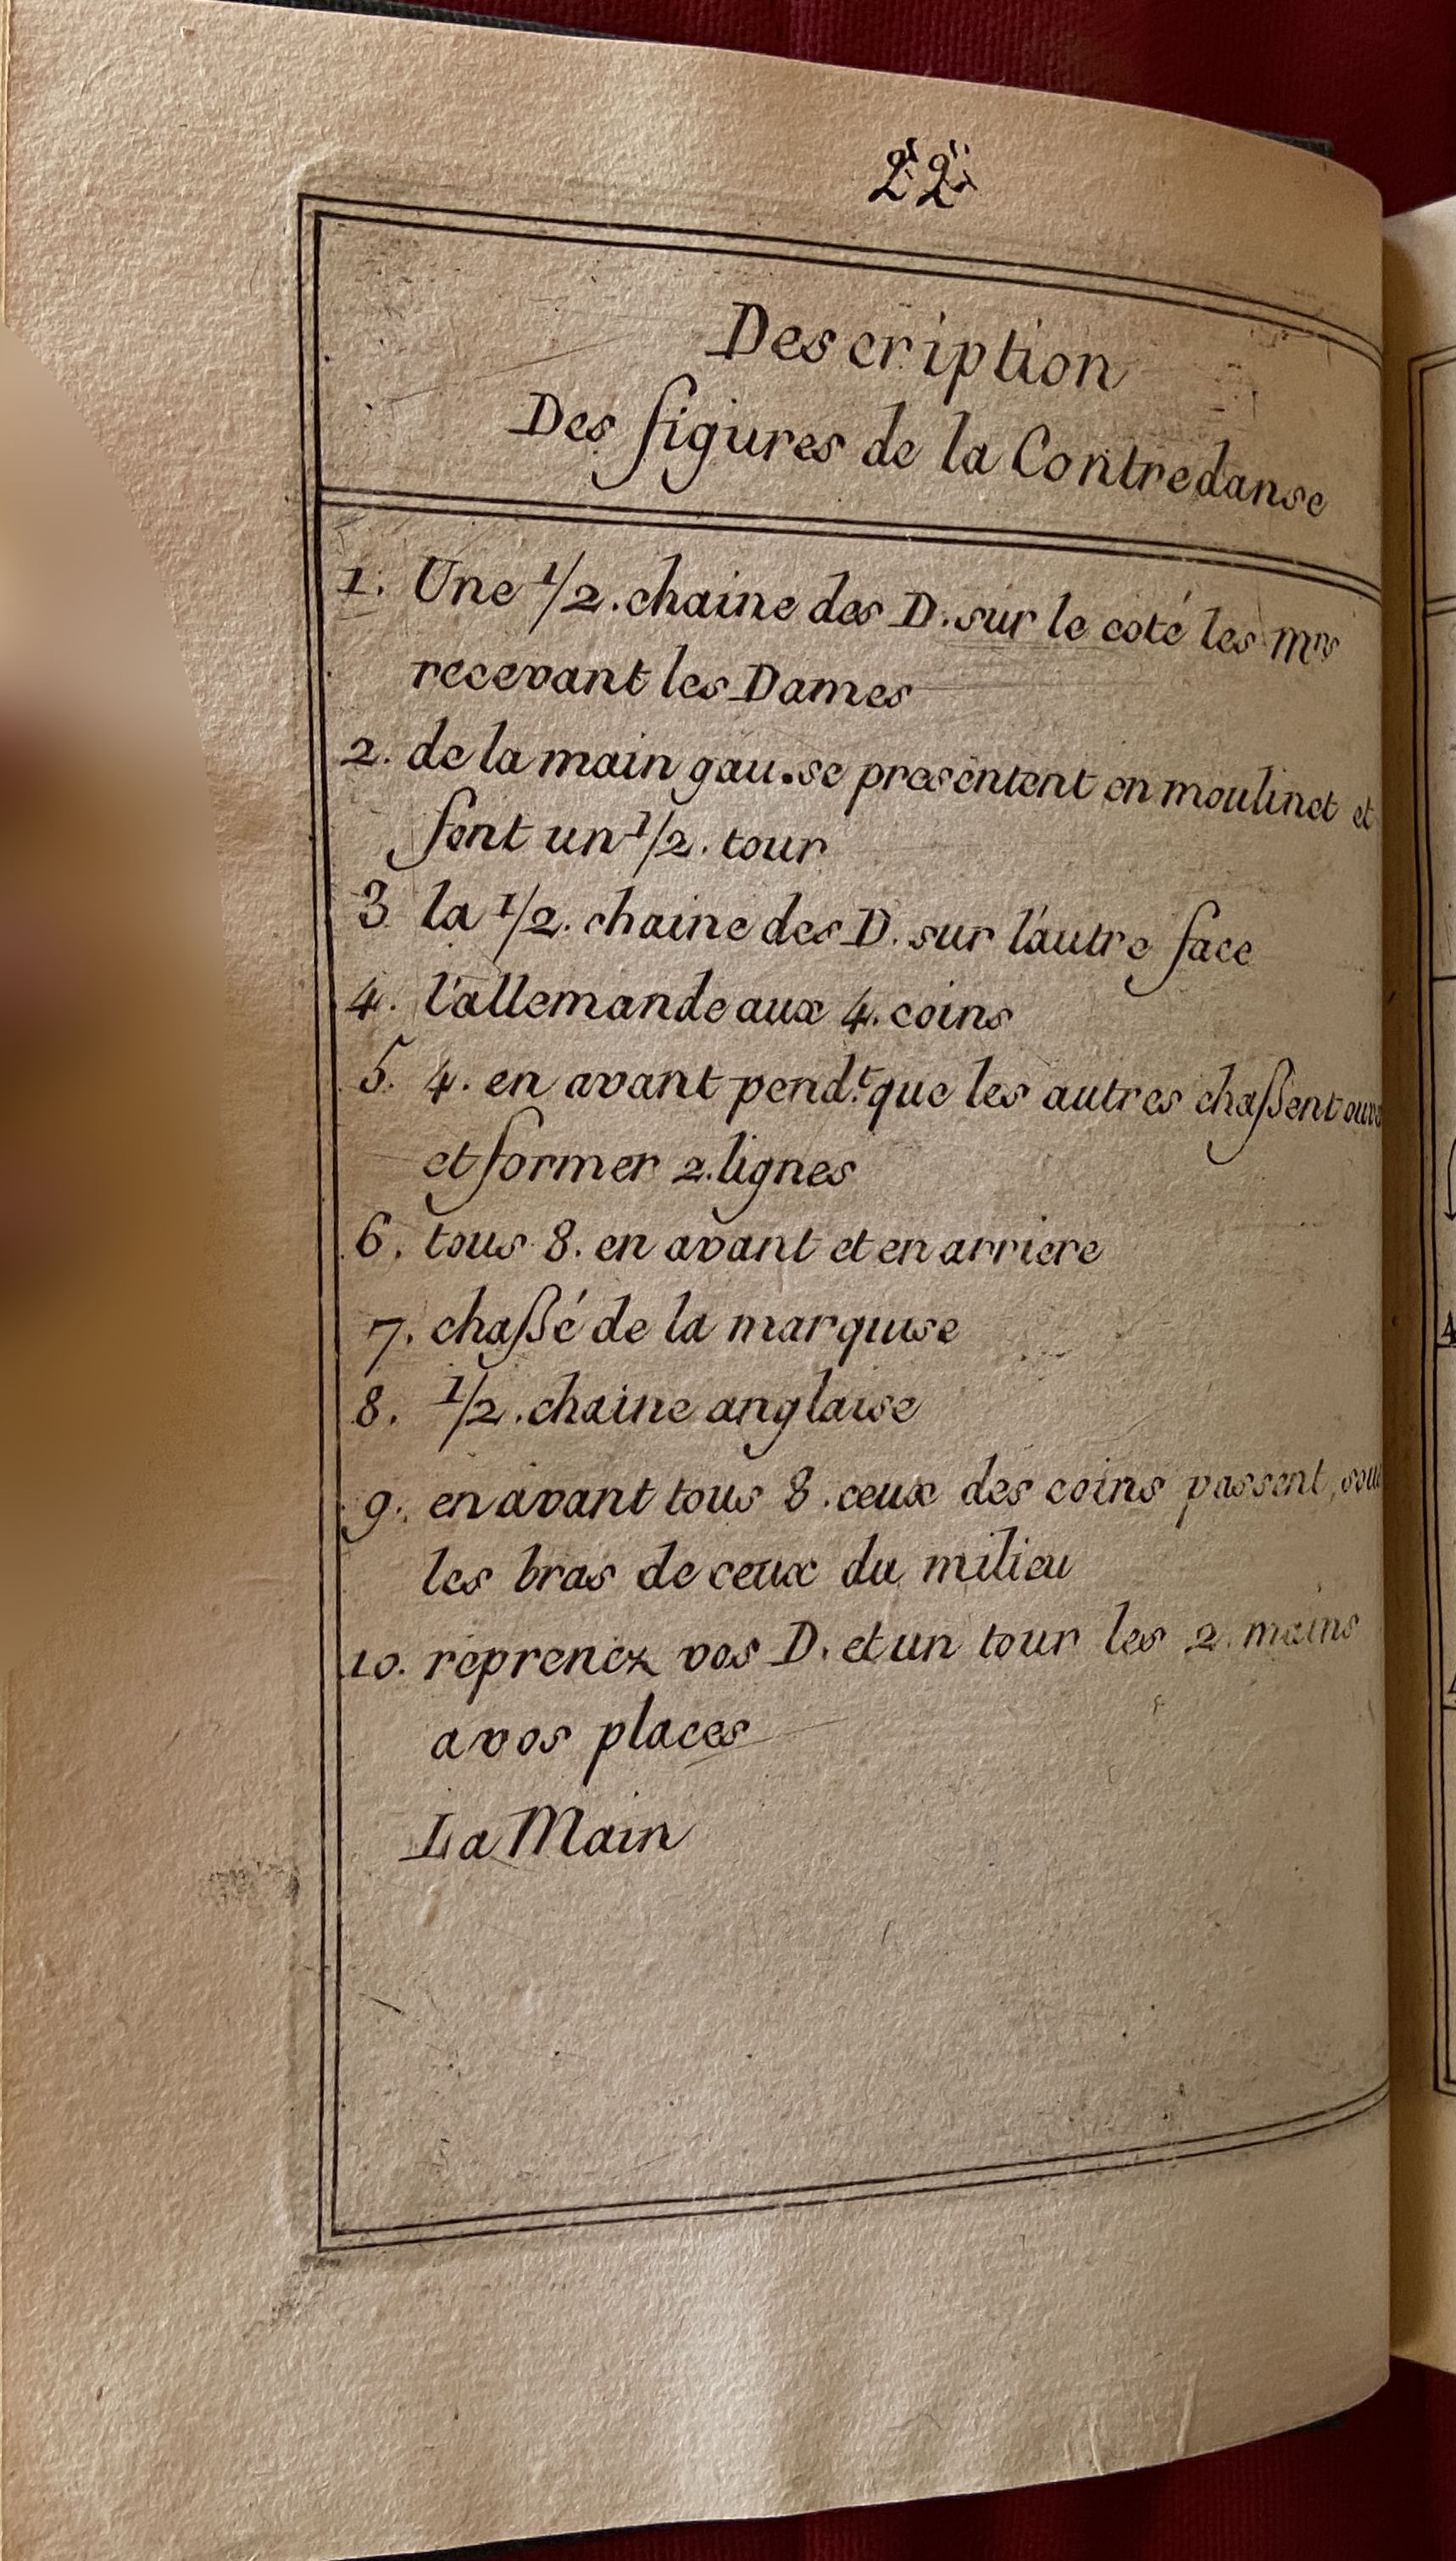 22
Description
Des figures de la Contredanse
1. Une 1/2. chaine des D. sur le coté les Mrs
recevant les Dames
2. de la main gau. se presentent en moulinet et
font un 1/2. tour
3 la 1/2. chaine des D. sur l'autre face
4. l'allemande aux 4. coins
5. 4. en avant pendt. que les autres chaßent
et former 2. lignes
6. tous 8. en avant et en arriere
7. chaßé de la marquise
8. 1/2. chaine anglaise
9. en avant tous 8. ceux des coins passent
les bras de ceux du milieu
10. reprenez vos D. et un tour les 2. mains
a vos places
La Main
4